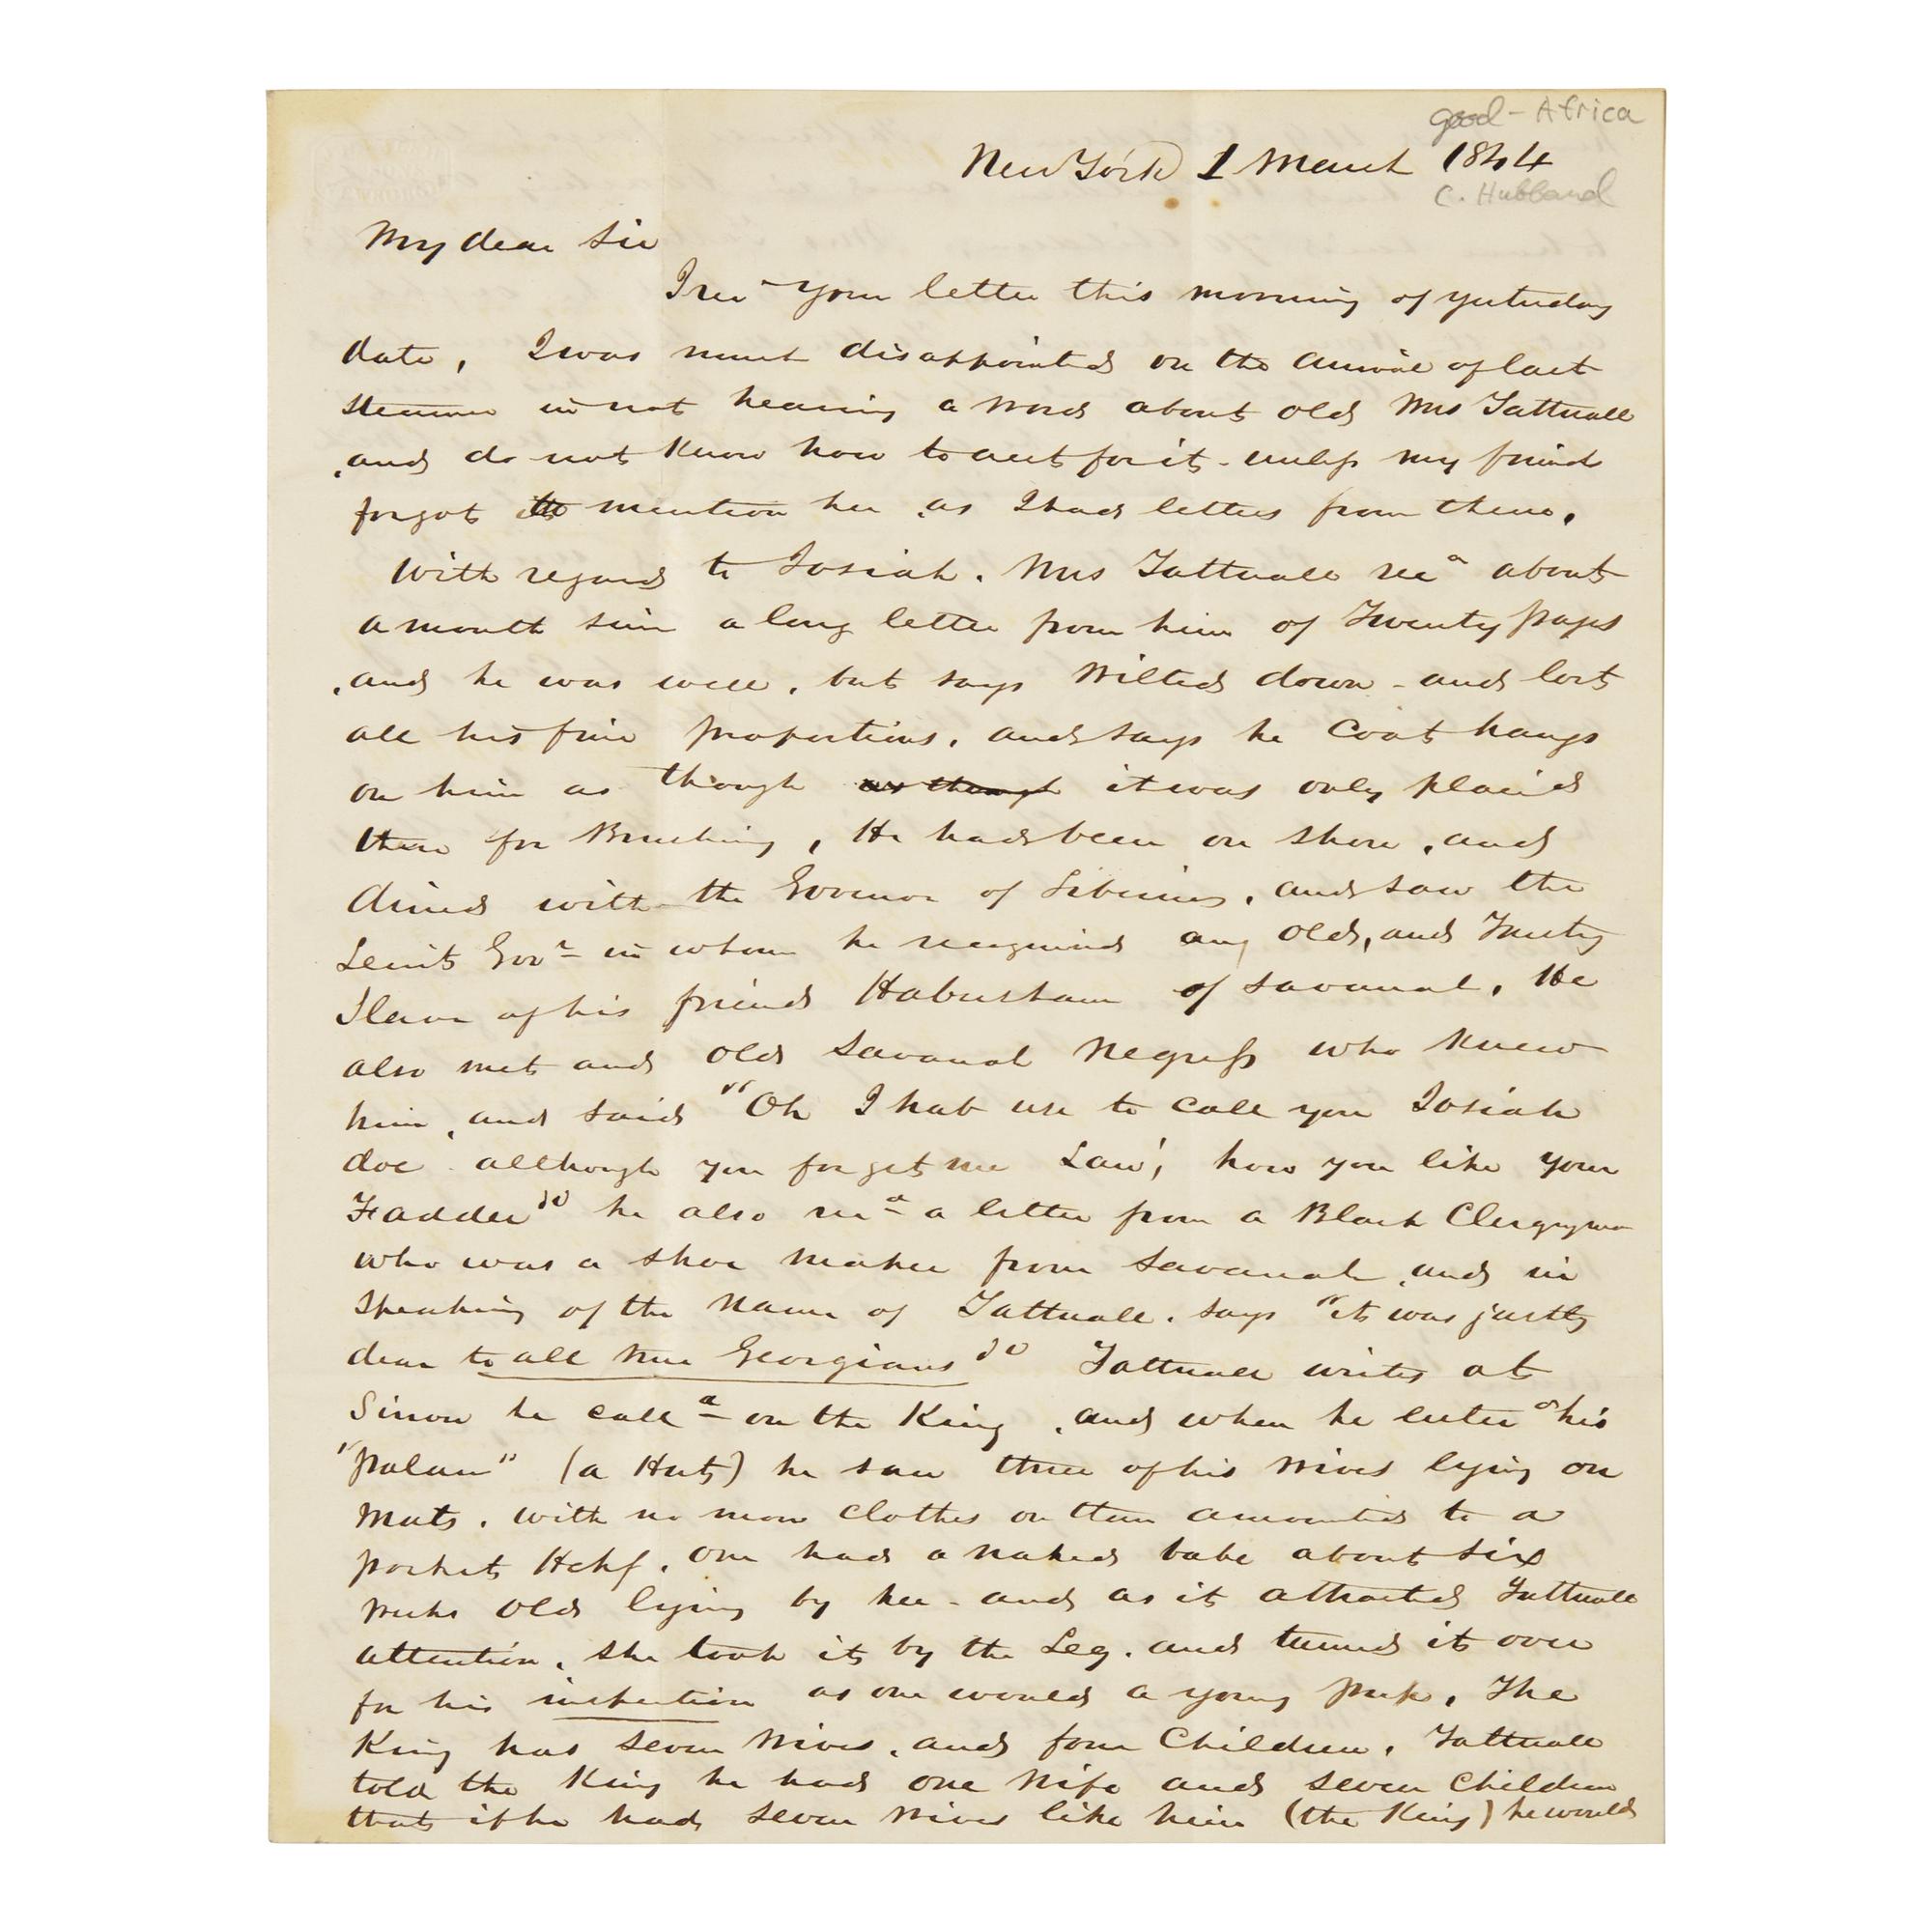 good - Africa
New York 1 March 1844
C. Hubbard
My dear Sir
I recd your letter this morning of yesterday
date, I was much disappointed on the arrival of last
Steamer in not hearing a word about old Mrs Tattnall
and do not know how to acct for it - unless my friends
forgot to mention her as I had letters from them.
With regard to Josiah. Mrs Tattnall recd about
a month since a long letter from him of Twenty pages
and he was well, but says wilted down - and lost
all his fine proportions, and says he Coat hangs
on him as though as though it was only placed
there for Brushing, He had been on shore, and
dined with the Govenor of Liberia, and saw the
Leiut Govr - in whom he recognised any old, and Trusty
Slave of his friend Habersham of Savanah, He
also met and old Savanah Negress who knew
him, and said "Oh I hab use to call you Josiah
doe although you forget me Law! how you like your
Fadder" he also recd a letter from a Black Clergyman
who was a shoe maker from Savanah and in
speaking of the name of Tattnall. says "it was justly
dear to all true Georgians" Tattnall writes at
Sinou he calld on the King, and when he enterd his
"palace" (a Hut) he saw three of his wives lying on
Mats, with no more clothes on than amounted to a
pocket Hdkf, one had a naked babe about six
weeks old lying by her - and as it attracted Tattnall
attention, she took it by the Leg. and turned it over
for his inspection as one would a young pup, The
King has seven wives, and four Children, Tattnall
told the King he had one wife and seven Children
that if he had seven wives like him (the King) he would